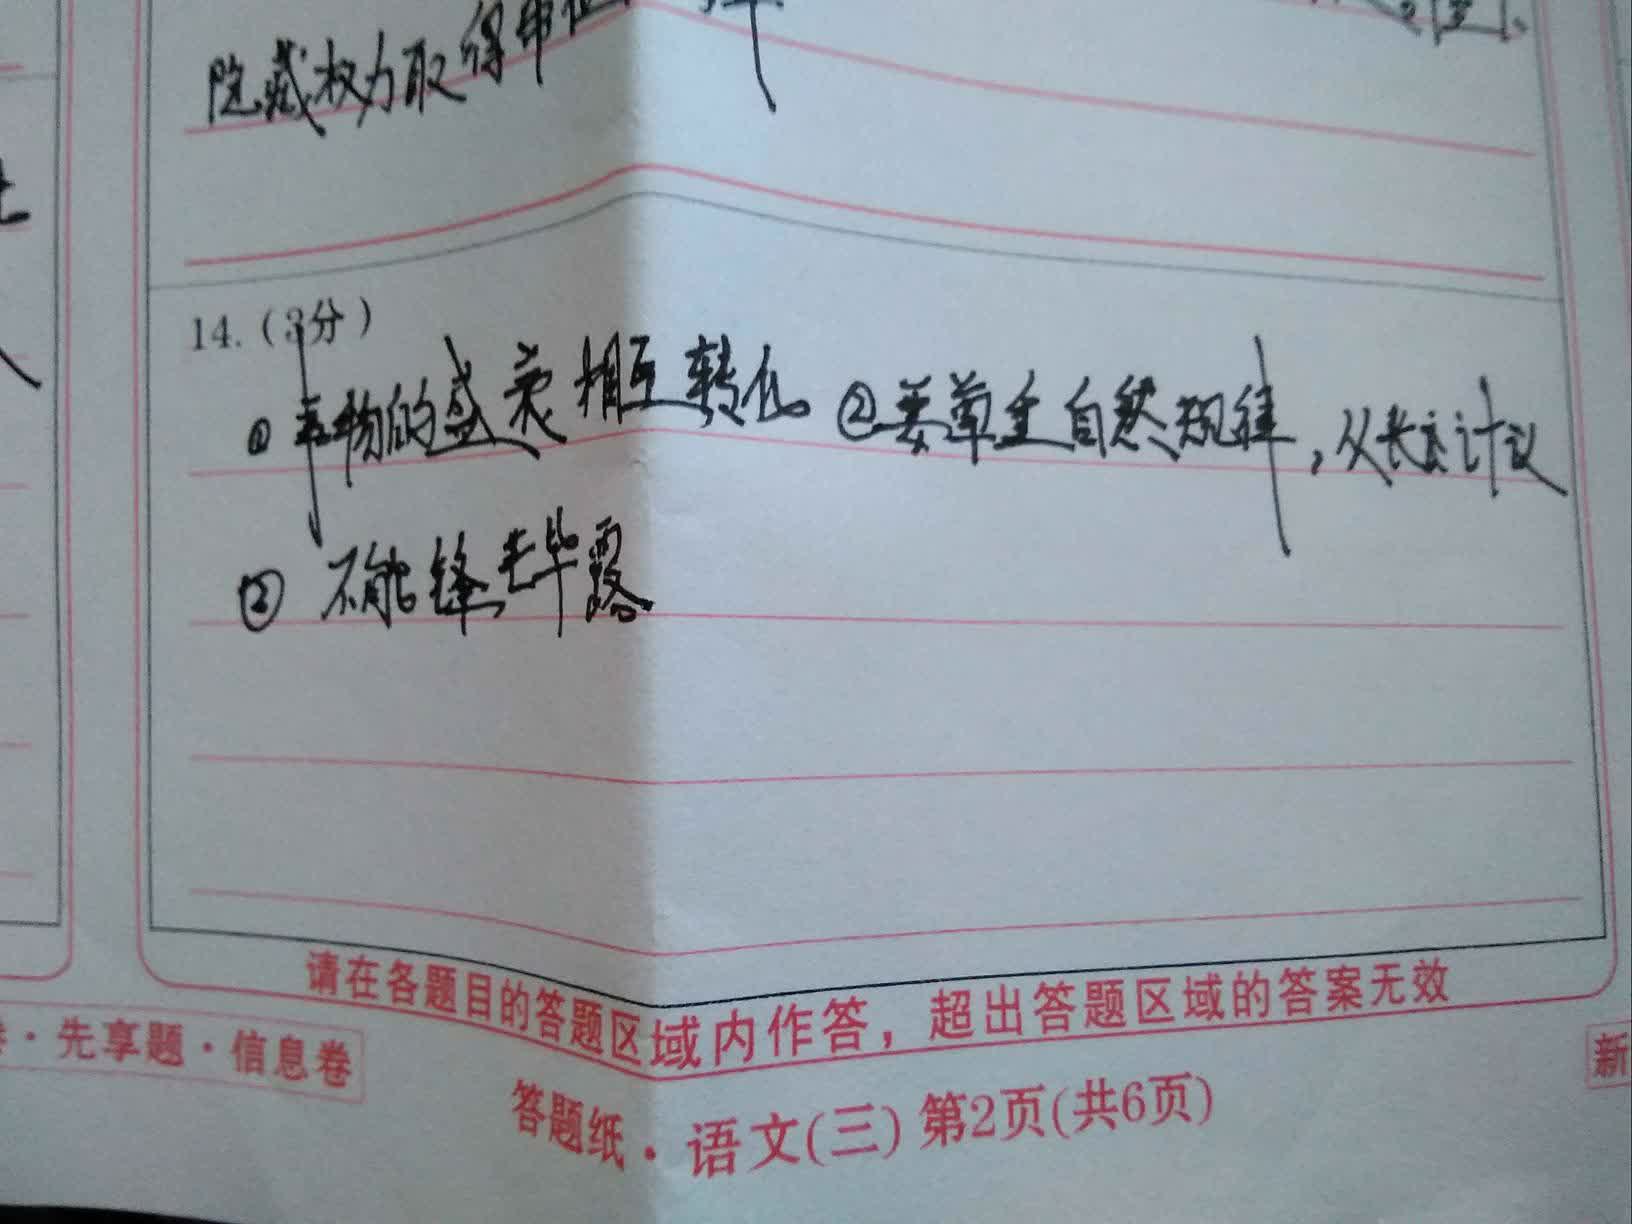 隐藏权力取得
14.（3分）
①事物的盛衰相互转化。②要尊重自然规律，从长远计议
②不能锋芒毕露
请在各题目的答题区域内作答，超出答题区域的答案无效
·先享题·信息卷
新
答题纸·语文(三) 第2页(共6页)